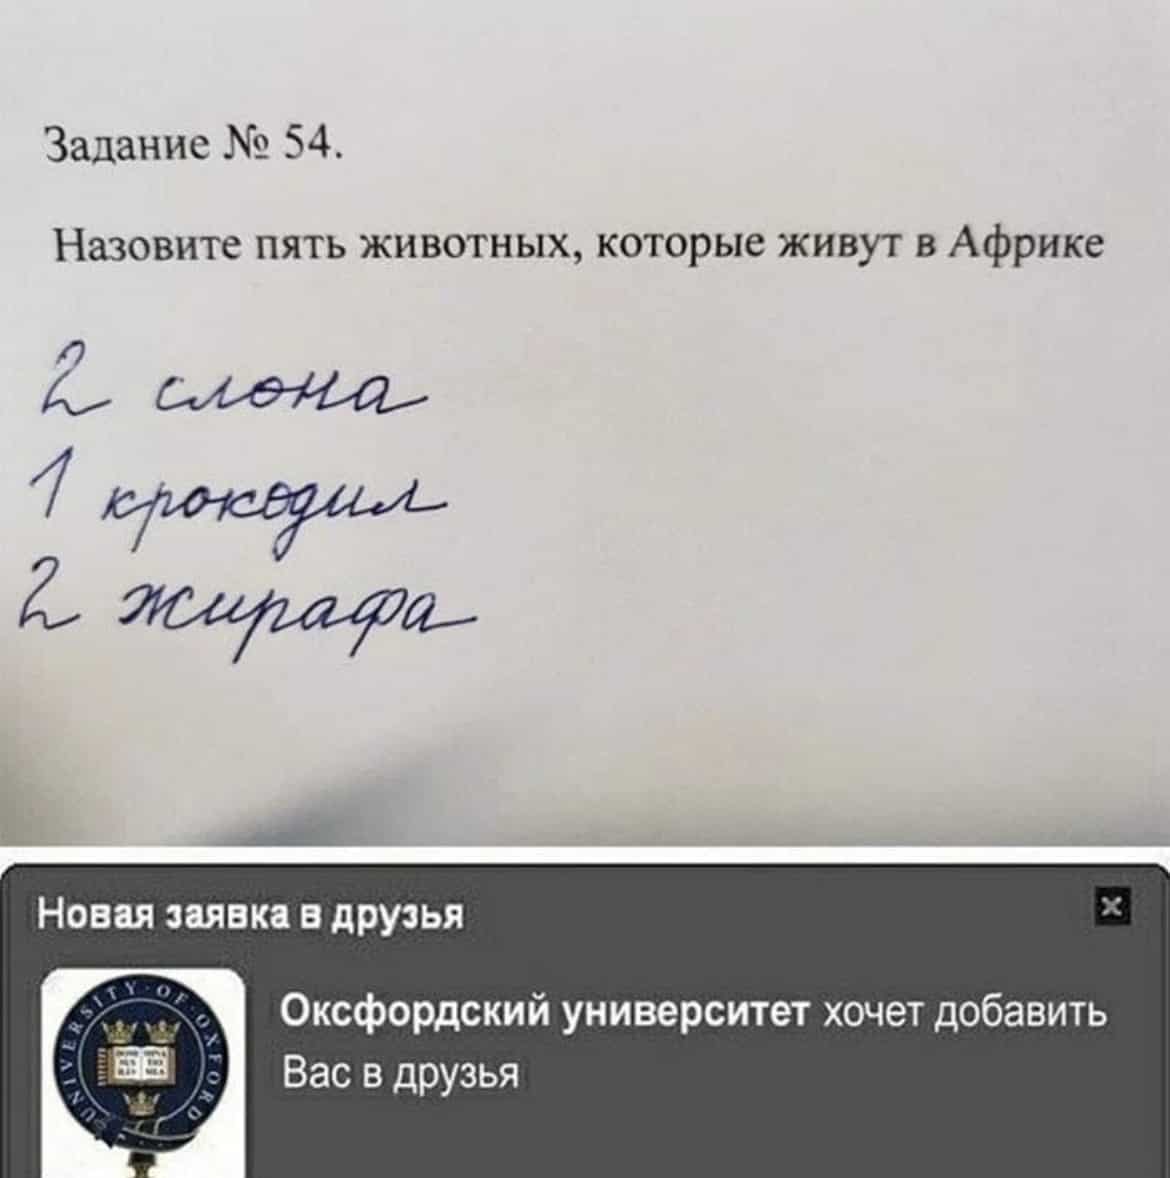 Задание № 54.
Назовите пять животных, которые живут в Африке
2 слона
1 крокодил
2 жирафа
Новая заявка в друзья
UNIVERSITY OF OXFORD
Оксфордский университет хочет добавить
Вас в друзья